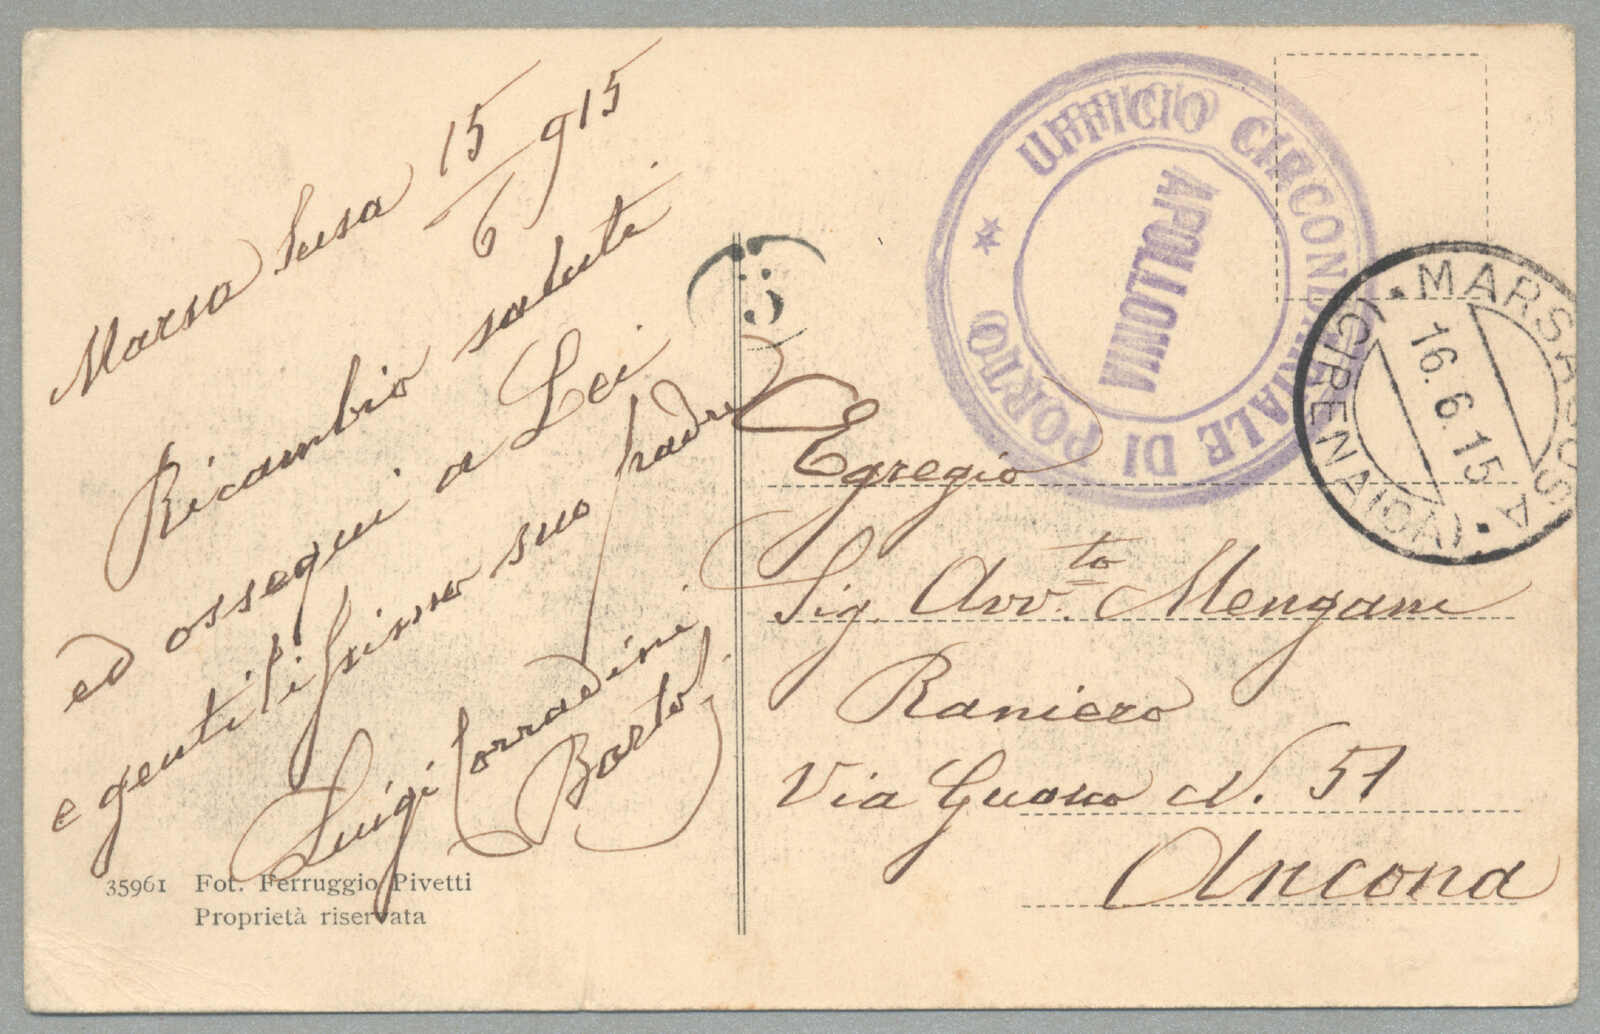 Marsa Susa 15/6 915
Ricambio saluti
ed ossequi a Lei
e gentilissimo suo padre
Luigi Corradini
Bartol
35961 Fot. Ferruggio Pivetti
Proprietà riservata
UFFICIO CIRCONDARIALE DI PORTO
APOLLONIA
MARSA SUSA
16.6.15
(CIRENAICA)
Egregio
Sig. Avv.to Mengani
Raniero
Via N. 51
Ancona